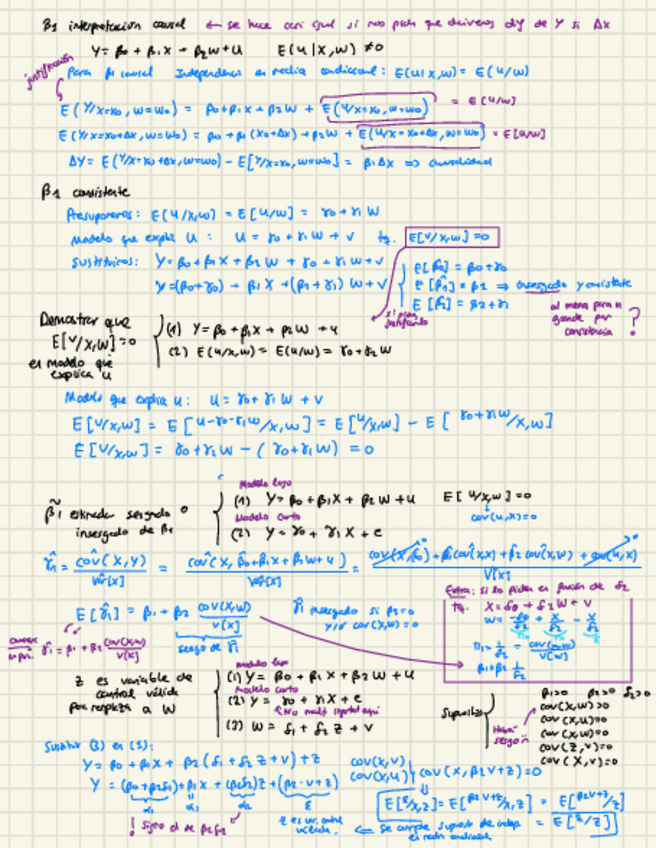 β1 interpretación causal ← se hace casi igual si nos piden que deivemos dif de Y si ΔX
Y = β0 + β1X + β2W + u E(u|X,W) ≠ 0
justificación
Para β1 causal Independencia en media condicional: E(u|X,W) = E(u/W)
E(Y/X=X0, W=W0) = β0 + β1X + β2W + E(u/X=X0, W=W0) = E[u/W]
E(Y/X=X0+ΔX, W=W0) = β0 + β1(X0+ΔX) + β2W + E(u/X=X0+ΔX, W=W0) = E[u/W]
ΔY = E(Y/X=X0+ΔX, W=W0) - E[Y/X=X0, W=W0] = β1ΔX ⇒ causalidad
β1 consistente
Presuponemos: E(u/X,W) = E[u/W] = γ0 + γ1W
Modelo que explica u: u = γ0 + γ1W + v tq. E[v/X,W] = 0
Sustituimos: Y = β0 + β1X + β2W + γ0 + γ1W + v
Y = (β0+γ0) + β1X + (β2+γ1)W + v
E[β̂0] = β0 + γ0
E[β̂1] = β1 ⇒ insesgado y consistente
E[β̂2] = β2 + γ1
al menos para n grande por consistencia ?
Demostrar que E[v/X,W] = 0 en modelo que explica u
(1) Y = β0 + β1X + β2W + u
(2) E(u/X,W) = E(u/W) = γ0 + γ1W
Modelo que explica u: u = γ0 + γ1W + v
E[v/X,W] = E[u-γ0-γ1W/X,W] = E[u/X,W] - E[γ0+γ1W/X,W]
E[v/X,W] = γ0 + γ1W - (γ0 + γ1W) = 0
β̃1 estimada sesgado o insesgado de β1
Modelo largo
(1) Y = β0 + β1X + β2W + u E[u/X,W] = 0
cov(u,X) = 0
Modelo corto
(2) Y = γ0 + γ1X + e
γ̂1 = côv(X,Y)/vâr[X] = côv(X, β̂0+β̂1X+β̂2W+u)/vâr[X] = cov(X,β̂0) + β̂1 côv(X,X) + β̂2 côv(X,W) + cov(u,X)/V[X]
E[γ̂1] = β1 + β2 cov(X,W)/V[X]
sesgo de γ̂1
γ̂1 insesgado si β2=0 y/o cov(X,W) = 0
γ̂1 = β1 + β2 cov(X,W)/V[X]
Extra: si lo piden en función de δ2
tq. X = δ0 + δ2W + v
W = -δ0/δ2 + X/δ2 - v/δ2
β1+β2 1/δ2
Z es variable de control válida para respecto a W
Modelo largo
(1) Y = β0 + β1X + β2W + u
Modelo corto
(2) Y = γ0 + γ1X + e
(3) W = δ1 + δ2Z + v
Supuestos
β1>0 β2>0 δ2>0
cov(X,W)>0
cov(X,u)=0
cov(W,u)=0
cov(Z,v)=0
cov(X,v)=0
Habrá sesgo
Sustituir (3) en (1):
Y = β0 + β1X + β2(δ1 + δ2Z + v) + z
Y = (β0+β2δ1) + β1X + (β2δ2)Z + (β2·v+z)
α0 α1 α2 ε
! signo el de β2δ2
cov(X,v)
cov(X,u)
cov(X, β2v+z) = 0
E[ε/X,Z] = E[β2v+z/X,Z] = E[β2v+z/Z] = E[ε/Z]
⇐ se cumple supuesto de indep en media condicional